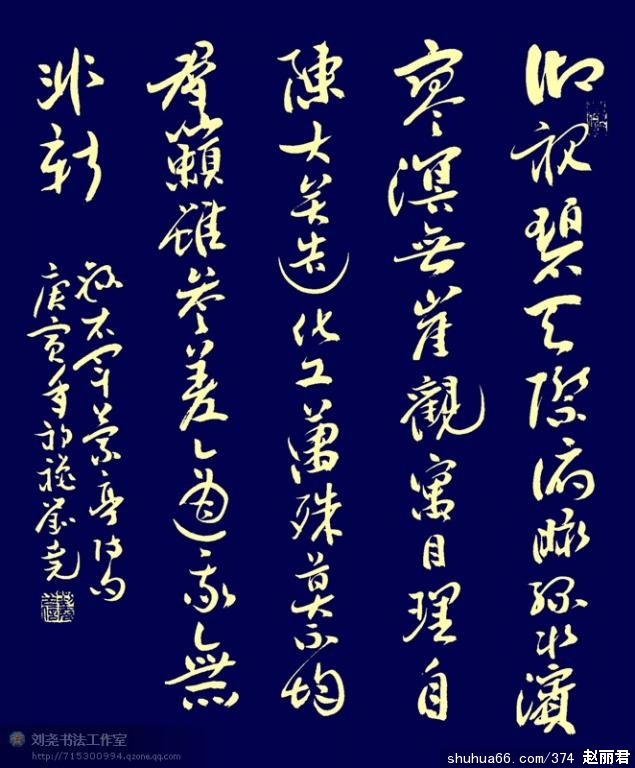 仰視碧天際俯瞰綠水濱
寥溟無崖觀寓目理自
陳大矣造化工萬殊莫不均
羣籟雖參差適我無
非新
錄右軍蘭亭詩句
庚寅年初穐劉堯
刘尧书法工作室
http://715300994.qzone.qq.com
shuhua66.com/374 赵丽君